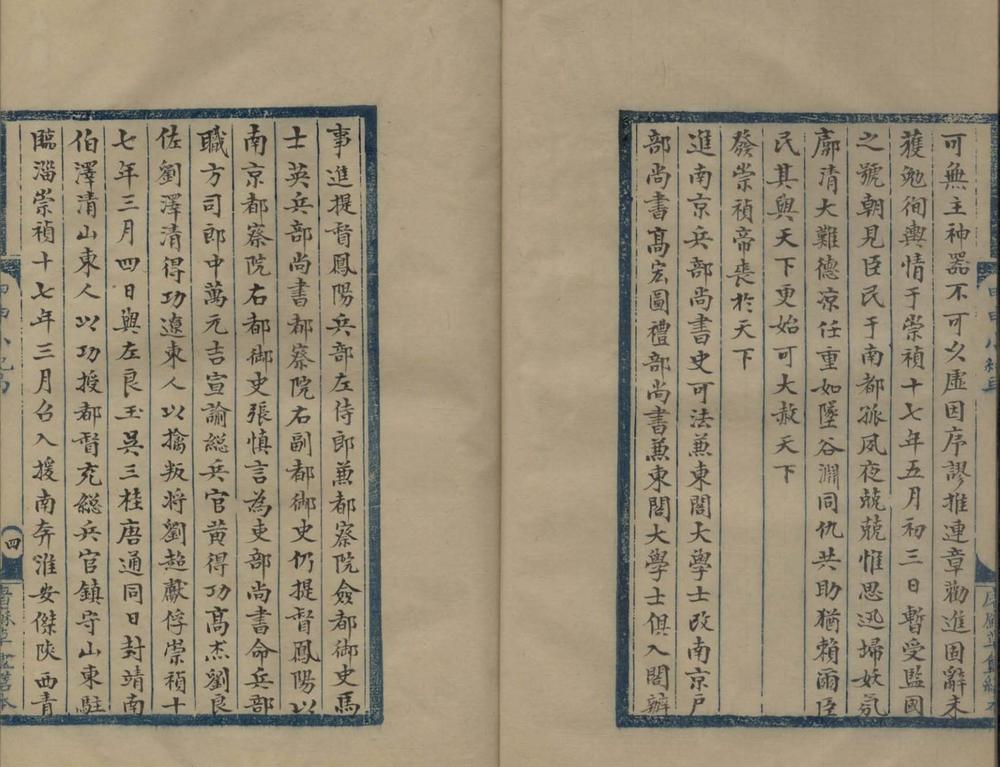 可無主神器不可以虛因序謬推連章勸進固辭未
獲勉徇輿情于崇禎十七年五月初三日暫受監國
之號朝見臣民于南都孤夙夜兢兢惟思迅埽妖氛
廓清大難德凉任重如墜谷淵同仇共助猶賴爾臣
民其與天下更始可大赦天下
發崇禎帝喪於天下
進南京兵部尚書史可法兼東閣大學士改南京戶
部尚書高宏圖禮部尚書兼東閣大學士俱入閣辦
事進提督鳳陽兵部左侍郎兼都察院僉都御史馬
士英兵部尚書都察院右副都御史仍提督鳳陽以
南京都察院右都御史張慎言為吏部尚書命兵部
職方司郎中萬元吉宣諭総兵官黄得功高杰劉良
佐劉澤清得功遼東人以擒叛将劉超獻俘崇禎十
七年三月四日與左良玉吳三桂唐通同日封靖南
伯澤清山東人以功授都督充総兵官鎮守山東駐
臨淄崇禎十七年三月召入援南奔淮安傑陝西青
四